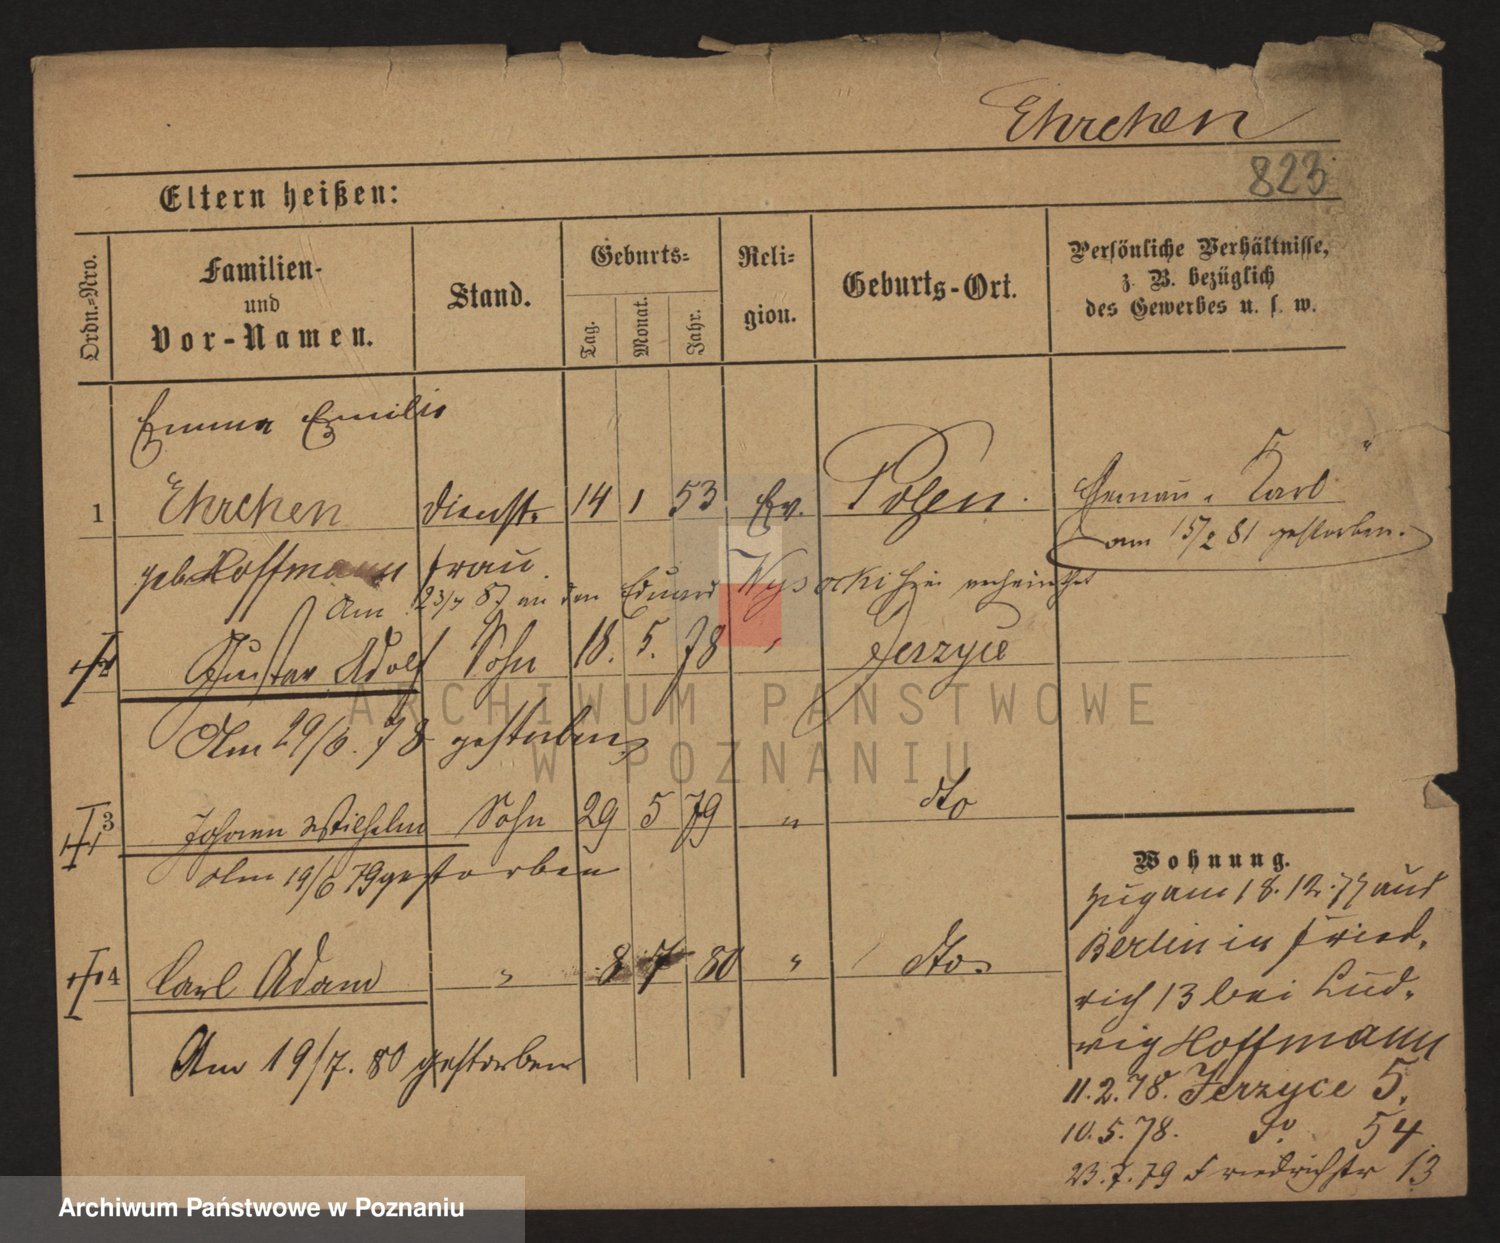 Ehrchen
823
Eltern heißen:
Ordn.-Nro.
Familien-
und
Vor-Namen.
Stand.
Geburts-
Tag.
Monat.
Jahr.
Reli-
gion.
Geburts-Ort.
Persönliche Verhältnisse,
z. B. bezüglich
des Gewerbes u. s. w.
Emma Emilie
1 Ehrchen Dienst- 14 1 53 Ev. Posen. Karl
am 15/2 81 gestorben.
geb. Hoffmann frau.
Am 23/7 87 an den Eduard Wysocki verheirathet
2 Gustav Adolf Sohn 18. 5. 78 " Jerzyce
Am 29/6. 78 gestorben
3 Johann Wilhelm Sohn 29 5 79 " dto
Am 19/6 79 gestorben
4 Carl Adam " 8 7 80 " dto.
Am 19/7. 80 gestorben
Wohnung.
zug am 18.12.77 aus
Berlin in Fried-
rich 13 bei Lud-
wig Hoffmann
11.2.78. Jerzyce 5.
10.5.78. do 54
23.7.79 Friedrichstr 13
ARCHIWUM PAŃSTWOWE
W POZNANIU
Archiwum Państwowe w Poznaniu